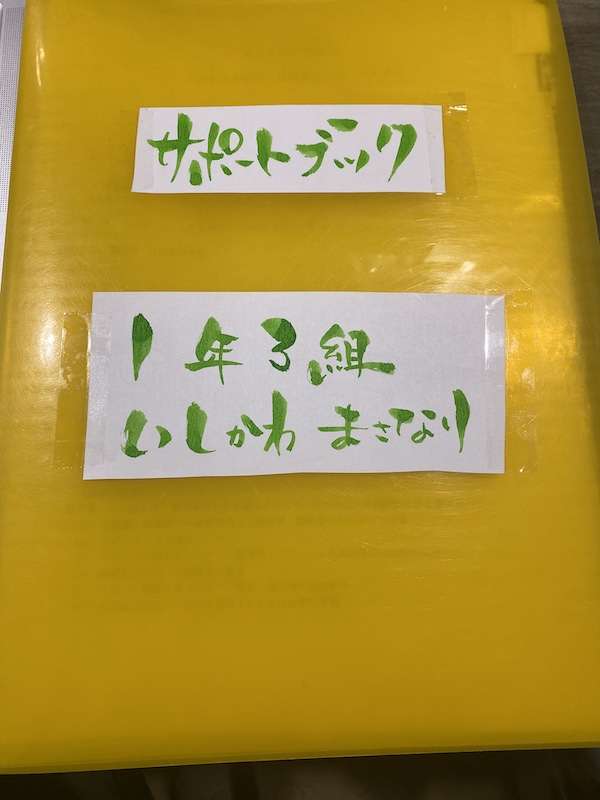 サポートブック
1年3組
いしかわ まさなり